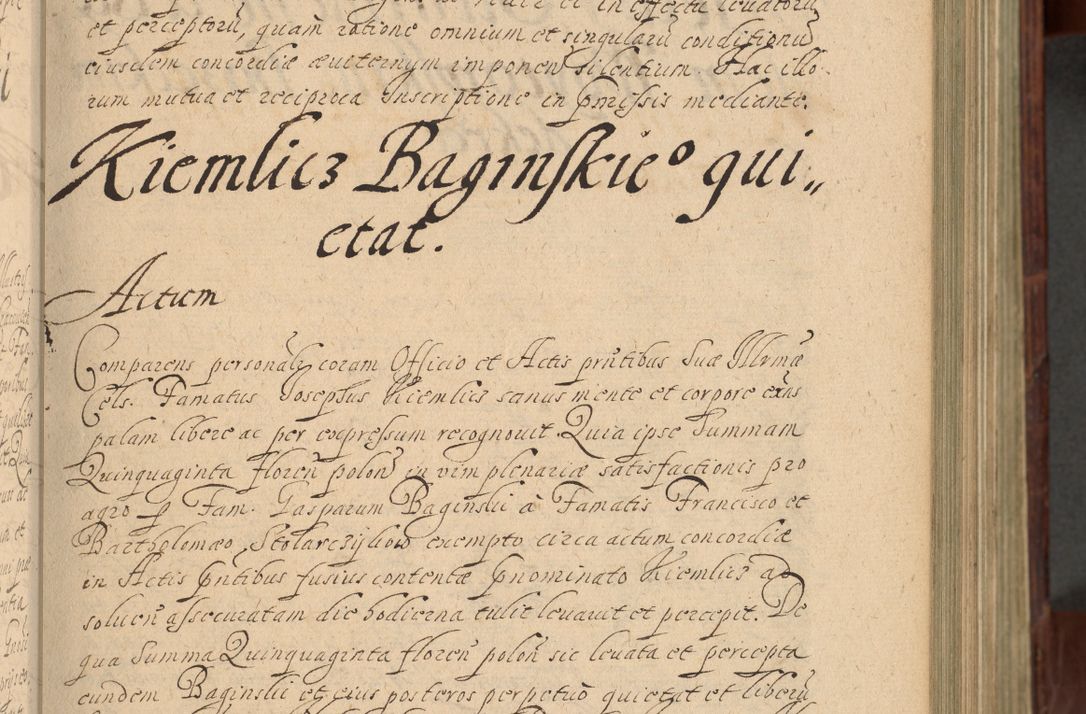 et perceptorũ, quam ratione omnium et singularũ conditionũ
eiusdem concordiæ æuiternym imponen silentium. Hac illo-
rum mutua et reciproca Inscriptione in præssis mediante.
Kiemlicz Baginskieº qui„
etat.
Actum
Comparens personalr coram Officio et Actis pntibus Suæ Illrmæ
Cels. Famatus Josephus Kiemlicz sanus mente et corpore exns
palam libere ac per expressum recognouit Quia ipse Summam
Quinquaginta floren polon in vim plenariæ satisfactionis pro
agro p Fam. Gasparum Baginski à Famatis Francisco et
Bartholomæo Stolarczykow exempto circa actum concordiæ
in Actis pntibus fusius contentæ pnominato Kiemlicz ad
soluen assecuratam die hodierna tulit leuauit et percepit. De
qua Summa Quinquaginta floren polon sic leuata et percepta
eundem Baginski et eius posteros perpetuo quietat et liberũ